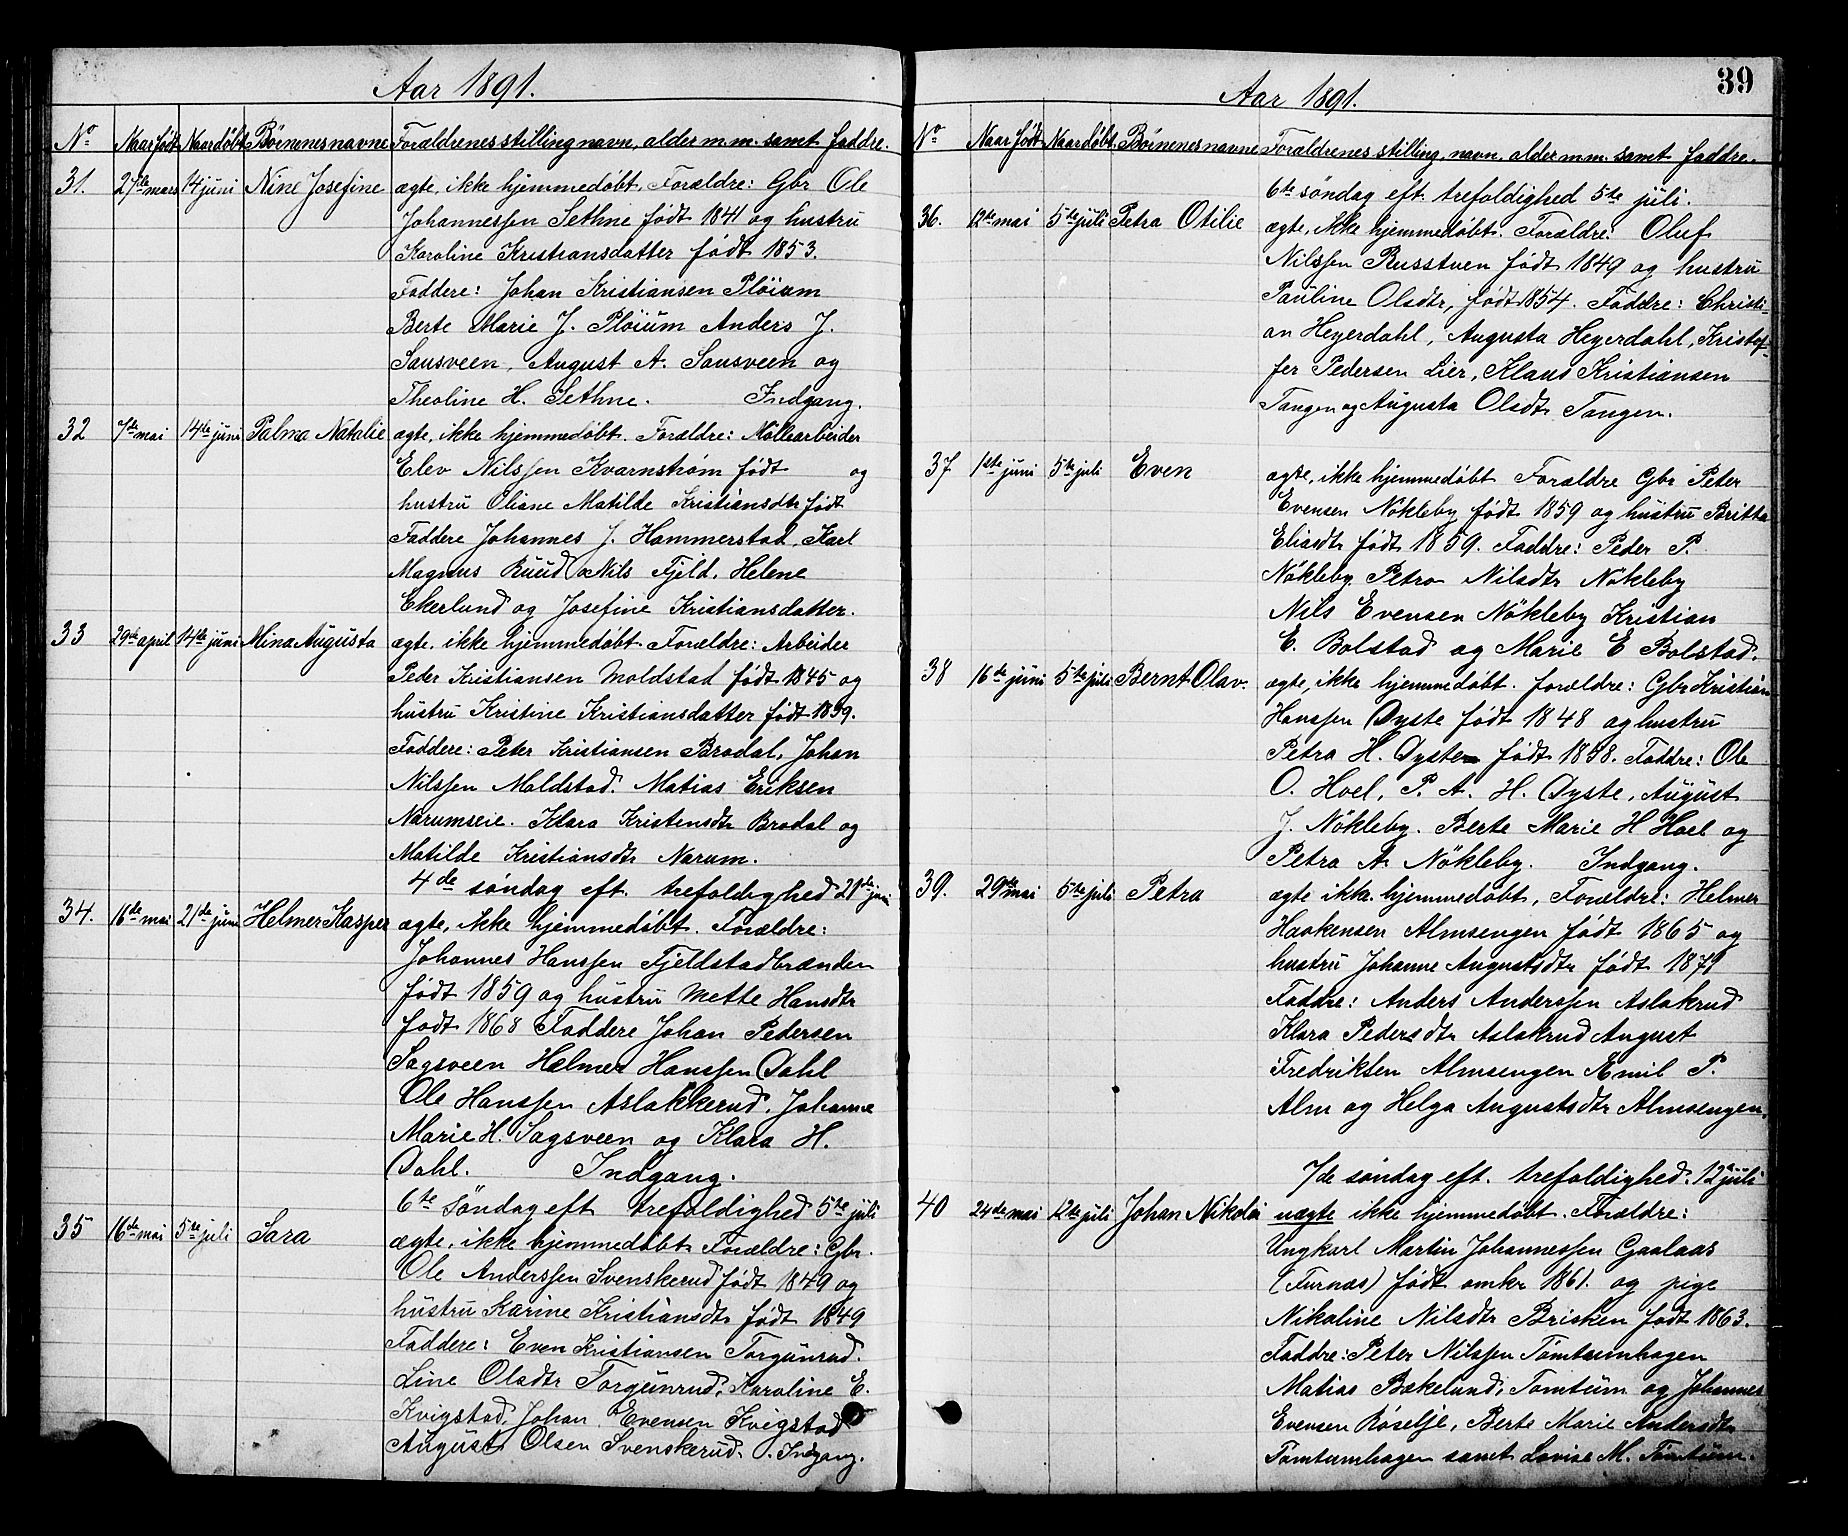 Aar 1891.
No Naar født Naar døbt Børnenes navne Forældrenes stilling navn, alder m.m. samt faddre.
31. 27de mars 14 juni Nine Josefine ægte, ikke hjemmedøbt, Forældre: Gbr Ole
Johannessen Sethne født 1841 og hustru
Karoline Kristiansdatter født 1853.
Faddere: Johan Kristiansen Pløium
Berte Marie J. Pløium Anders J.
Sausveen, August A. Sausveen og
Theoline H. Sethne. Indgang.
32 7de mai 14de juni Palma Natalie ægte, ikke hjemmedøbt. Forældre: Møllearbeider
Elev Nilssen Kvarnstrøm født og
hustru Oliane Matilde Kristiansdtr født
Faddere Johannes J. Hammerstad, Karl
Magnus Ruud Nils Fjeld, Helene
Ekerlund og Josefine Kristiansdatter.
33 29de april 14de juni Mina Augusta ægte, ikke hjemmedøbt Forældre: Arbeider
Peder Kristiansen Moldstad født 1845 og
hustru Kristine Kristiansdatter født 1859.
Faddere: Peter Kristiansen Brodal, Johan
Nilssen Moldstad. Matias Eriksen
Narumseie. Klara Kristensdtr Brodal og
Matilde Kristiansdtr Narum.
4de søndag eft. trefoldighed 21de juni
34. 16de mai 21de juni Helmer Kasper ægte, ikke hjemmedøbt. Forældre:
Johannes Hanssen Fjeldstadbrænden
født 1859 og hustru Mette Hansdtr
født 1868 Faddere Johan Pedersen
Sagsveen Helmer Hanssen Dahl
Ole Hanssen Aslakkerud, Johanne
Marie H. Sagsveen og Klara H.
Dahl. Indgang.
6te søndag eft trefoldighed 5te juli
35 16de mai 5te juli Sara ægte, ikke hjemmedøbt Forældre: Gbr.
Ole Anderssen Svenskerud født 1849 og
hustru Karine Kristiansdtr født 1849
Faddere: Even Kristiansen Torgunrud.
Line Olsdtr Torgunrud, Karoline E.
Kvigstad, Johan Evensen Kvigstad
August Olsen Svenskerud. Indgang.
39
Aar 1891.
No Naar født Naar døbt. Børnenes navne Forældrenes stilling, navn, alder m.m. samt faddre.
6te søndag eft. trefoldighed 5te juli.
36. 12de mai 5te juli Petra Otilie ægte, ikke hjemmedøbt. Forældre: Oluf
Nilssen Russtuen født 1849 og hustru
Pauline Olsdtr, født 1854. Faddre: Christi-
an Heyerdahl, Augusta Heyerdahl, Kristof-
fer Pedersen Lier, Klaus Kristiansen
Tangen og Augusta Olsdtr Tangen.
37 1ste juni 5te juli Even ægte, ikke hjemmedøbt Forældre Gbr Peter
Evensen Nøkleby født 1859 og hustru Britta
Eliasdtr født 1859. Faddre: Peder P.
Nøkleby Petra Nilsdtr Nøkleby
Nils Evensen Nøkleby Kristian
E. Bolstad og Marie E Bolstad.
38 16de juni 5te juli Bernt Olav. ægte, ikke hjemmedøbt. forældre: Gbr Kristian
Hanssen Dyste født 1848 og hustru
Petra H. Dyste født 1858. Faddre: Ole
O. Hoel, P. A. H. Dyste, August
J. Nøkleby. Berte Marie H Hoel og
Petra A. Nøkleby. Indgang.
39. 29de mai 5te juli Petra ægte ikke hjemmedøbt, Forældre: Helmer
Haakensen Almsengen født 1865 og
hustru Johanne Augustsdtr født 1871
Faddre: Anders Anderssen Aslakrud
Klara Pedersdtr Aslakrud August
Fredriksen Almsengen Emil P.
Alm og Helga Augustsdtr Almsengen.
7de søndag eft. trefoldighed. 12te juli
40 24de mai 12te juli Johan Nikolai uægte ikke hjemmedøbt. Forældre:
Ungkarl Martin Johannessen Gaalaas
(Furnæs) født omkr 1861. og pige
Nikoline Nilsdtr Brisken født 1863.
Faddre: Peter Nilssen Tømtumhagen
Matias Bækelund, Tomtum og Johannes
Evensen Røselje, Berte Marie Andersdtr
Tømtumhagen samt Lovise M. Tømtum.